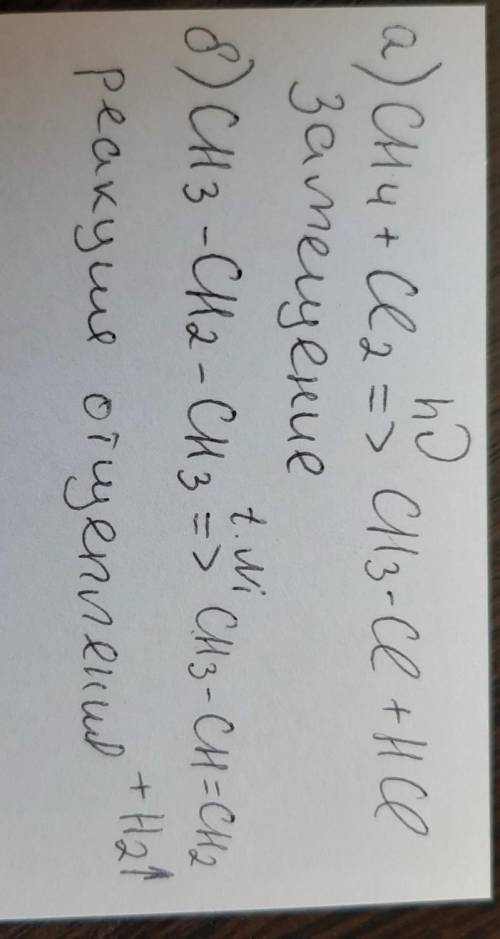 а) CH4 + Cl2 => hν CH3-Cl + HCl
Замещение
б) CH3-CH2-CH3 => t. Ni CH3-CH=CH2 + H2↑
реакция отщепления